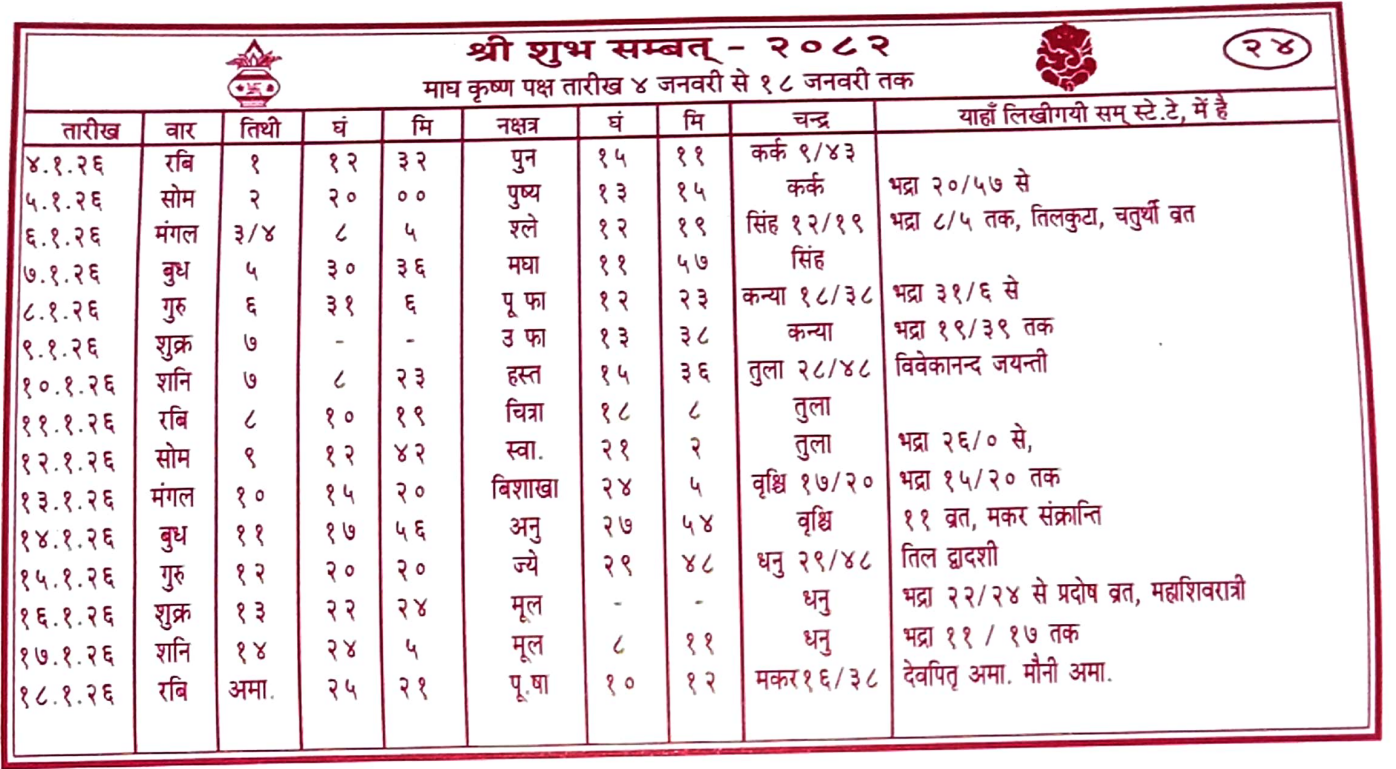 श्री शुभ सम्बत् - २०८२
२४
माघ कृष्ण पक्ष तारीख ४ जनवरी से १८ जनवरी तक
तारीख वार तिथी घं मि नक्षत्र घं मि चन्द्र यहाँ लिखीगयी सम् स्टे.टे, में है
४.१.२६ रबि १ १२ ३२ पुन १५ ११ कर्क ९/४३
५.१.२६ सोम २ २० ०० पुष्य १३ १५ कर्क भद्रा २०/५७ से
६.१.२६ मंगल ३/४ ८ ५ श्ले १२ १९ सिंह १२/१९ भद्रा ८/५ तक, तिलकुटा, चतुर्थी व्रत
७.१.२६ बुध ५ ३० ३६ मघा ११ ५७ सिंह
८.१.२६ गुरु ६ ३१ ६ पू फा १२ २३ कन्या १८/३८ भद्रा ३१/६ से
९.१.२६ शुक्र ७ - - उ फा १३ ३८ कन्या भद्रा १९/३९ तक
१०.१.२६ शनि ७ ८ २३ हस्त १५ ३६ तुला २८/४८ विवेकानन्द जयन्ती
११.१.२६ रबि ८ १० १९ चित्रा १८ ८ तुला
१२.१.२६ सोम ९ १२ ४२ स्वा. २१ २ तुला भद्रा २६/० से,
१३.१.२६ मंगल १० १५ २० बिशाखा २४ ५ वृश्चि १७/२० भद्रा १५/२० तक
१४.१.२६ बुध ११ १७ ५६ अनु २७ ५४ वृश्चि ११ व्रत, मकर संक्रान्ति
१५.१.२६ गुरु १२ २० २० ज्ये २९ ४८ धनु २९/४८ तिल द्वादशी
१६.१.२६ शुक्र १३ २२ २४ मूल - - धनु भद्रा २२/२४ से प्रदोष व्रत, महाशिवरात्री
१७.१.२६ शनि १४ २४ ५ मूल ८ ११ धनु भद्रा ११ / १७ तक
१८.१.२६ रबि अमा. २५ २१ पू.षा १० १२ मकर१६/३८ देवपितृ अमा. मौनी अमा.